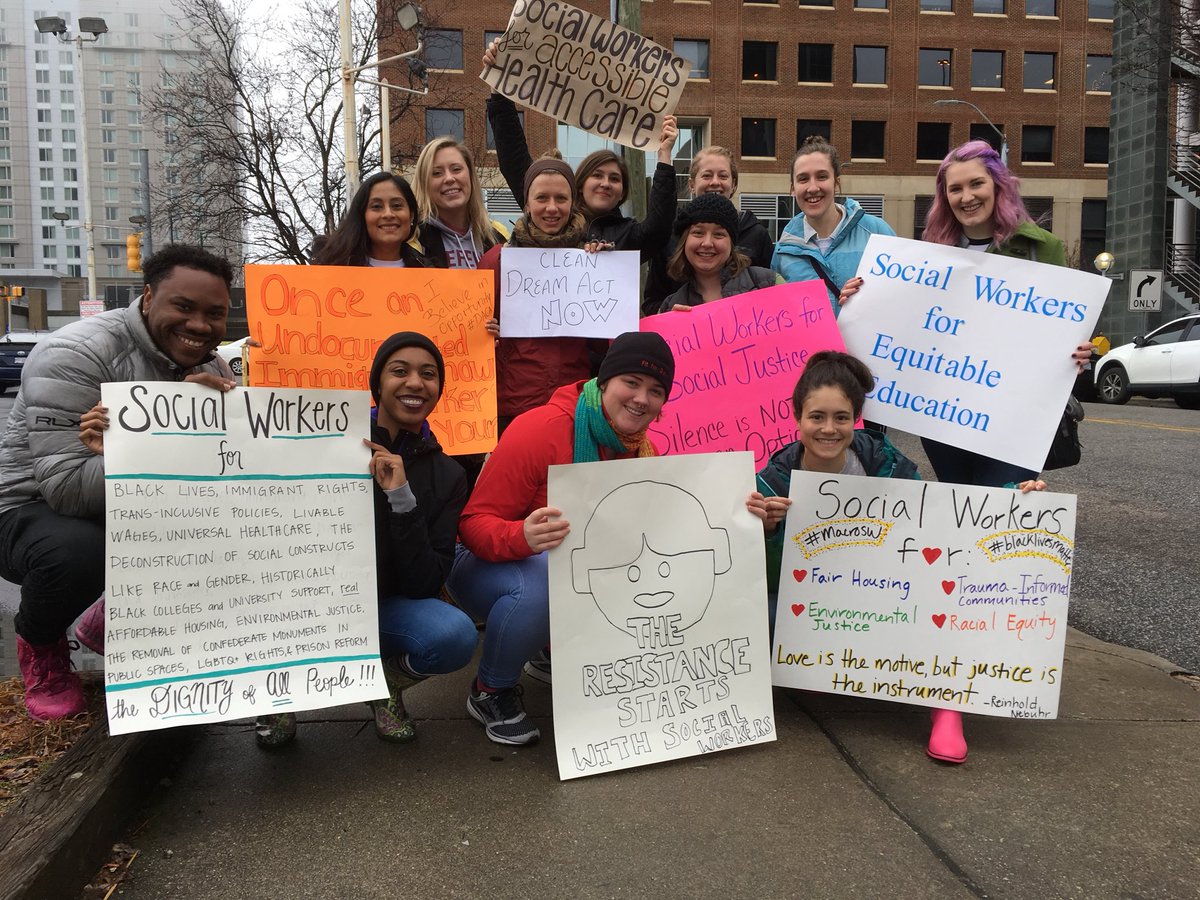 Social Workers
for accessible
Health Care
CLEAN
DREAM ACT
NOW
Once an
Undocumented
Immigrant now
Worker
You!
I
believe in
opportunity
Social Workers for
Social Justice
Silence is NOT
an Option
Social Workers
for
Equitable
Education
ONLY
Social Workers
for
BLACK LIVES, IMMIGRANT RIGHTS,
TRANS-INCLUSIVE POLICIES, LIVABLE
WAGES, UNIVERSAL HEALTHCARE, THE
DECONSTRUCTION OF SOCIAL CONSTRUCTS
LIKE RACE and GENDER, HISTORICALLY
BLACK COLLEGES and UNIVERSITY SUPPORT, real
AFFORDABLE HOUSING, ENVIRONMENTAL JUSTICE,
THE REMOVAL OF CONFEDERATE MONUMENTS IN
PUBLIC SPACES, LGBTQ+ RIGHTS, & PRISON REFORM
the DIGNITY of All People!!!
THE
RESISTANCE
STARTS
WITH SOCIAL
WORKERS
Social Workers
#MacroSW
for:
#blacklivesmatter
Fair Housing
Trauma-Informed
Communities
Environmental
Justice
Racial Equity
Love is the motive, but justice is
the instrument.
-Reinhold
Nebuhr